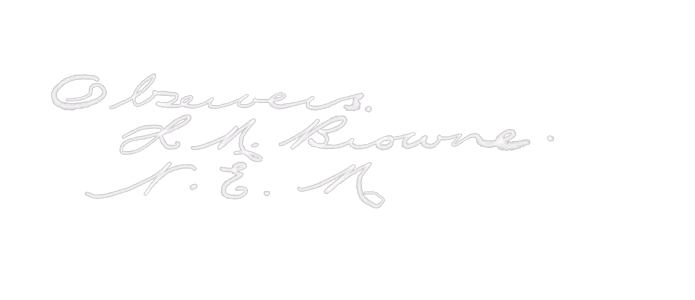 Observers.
L. N. Browne.
N. E. M